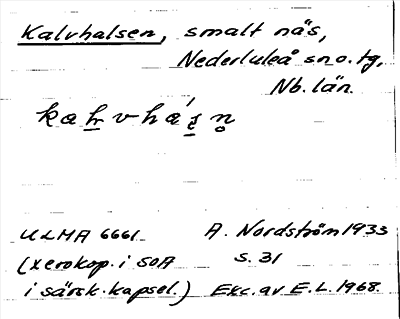 Kalvhalsen, smalt näs,
Nederluleå sn o. tg,
Nb. län.
ULMA 6661. A. Nordström 1933
(xerokop. i SOA s. 31
i särsk. kapsel.) Exc. av E.L. 1968.